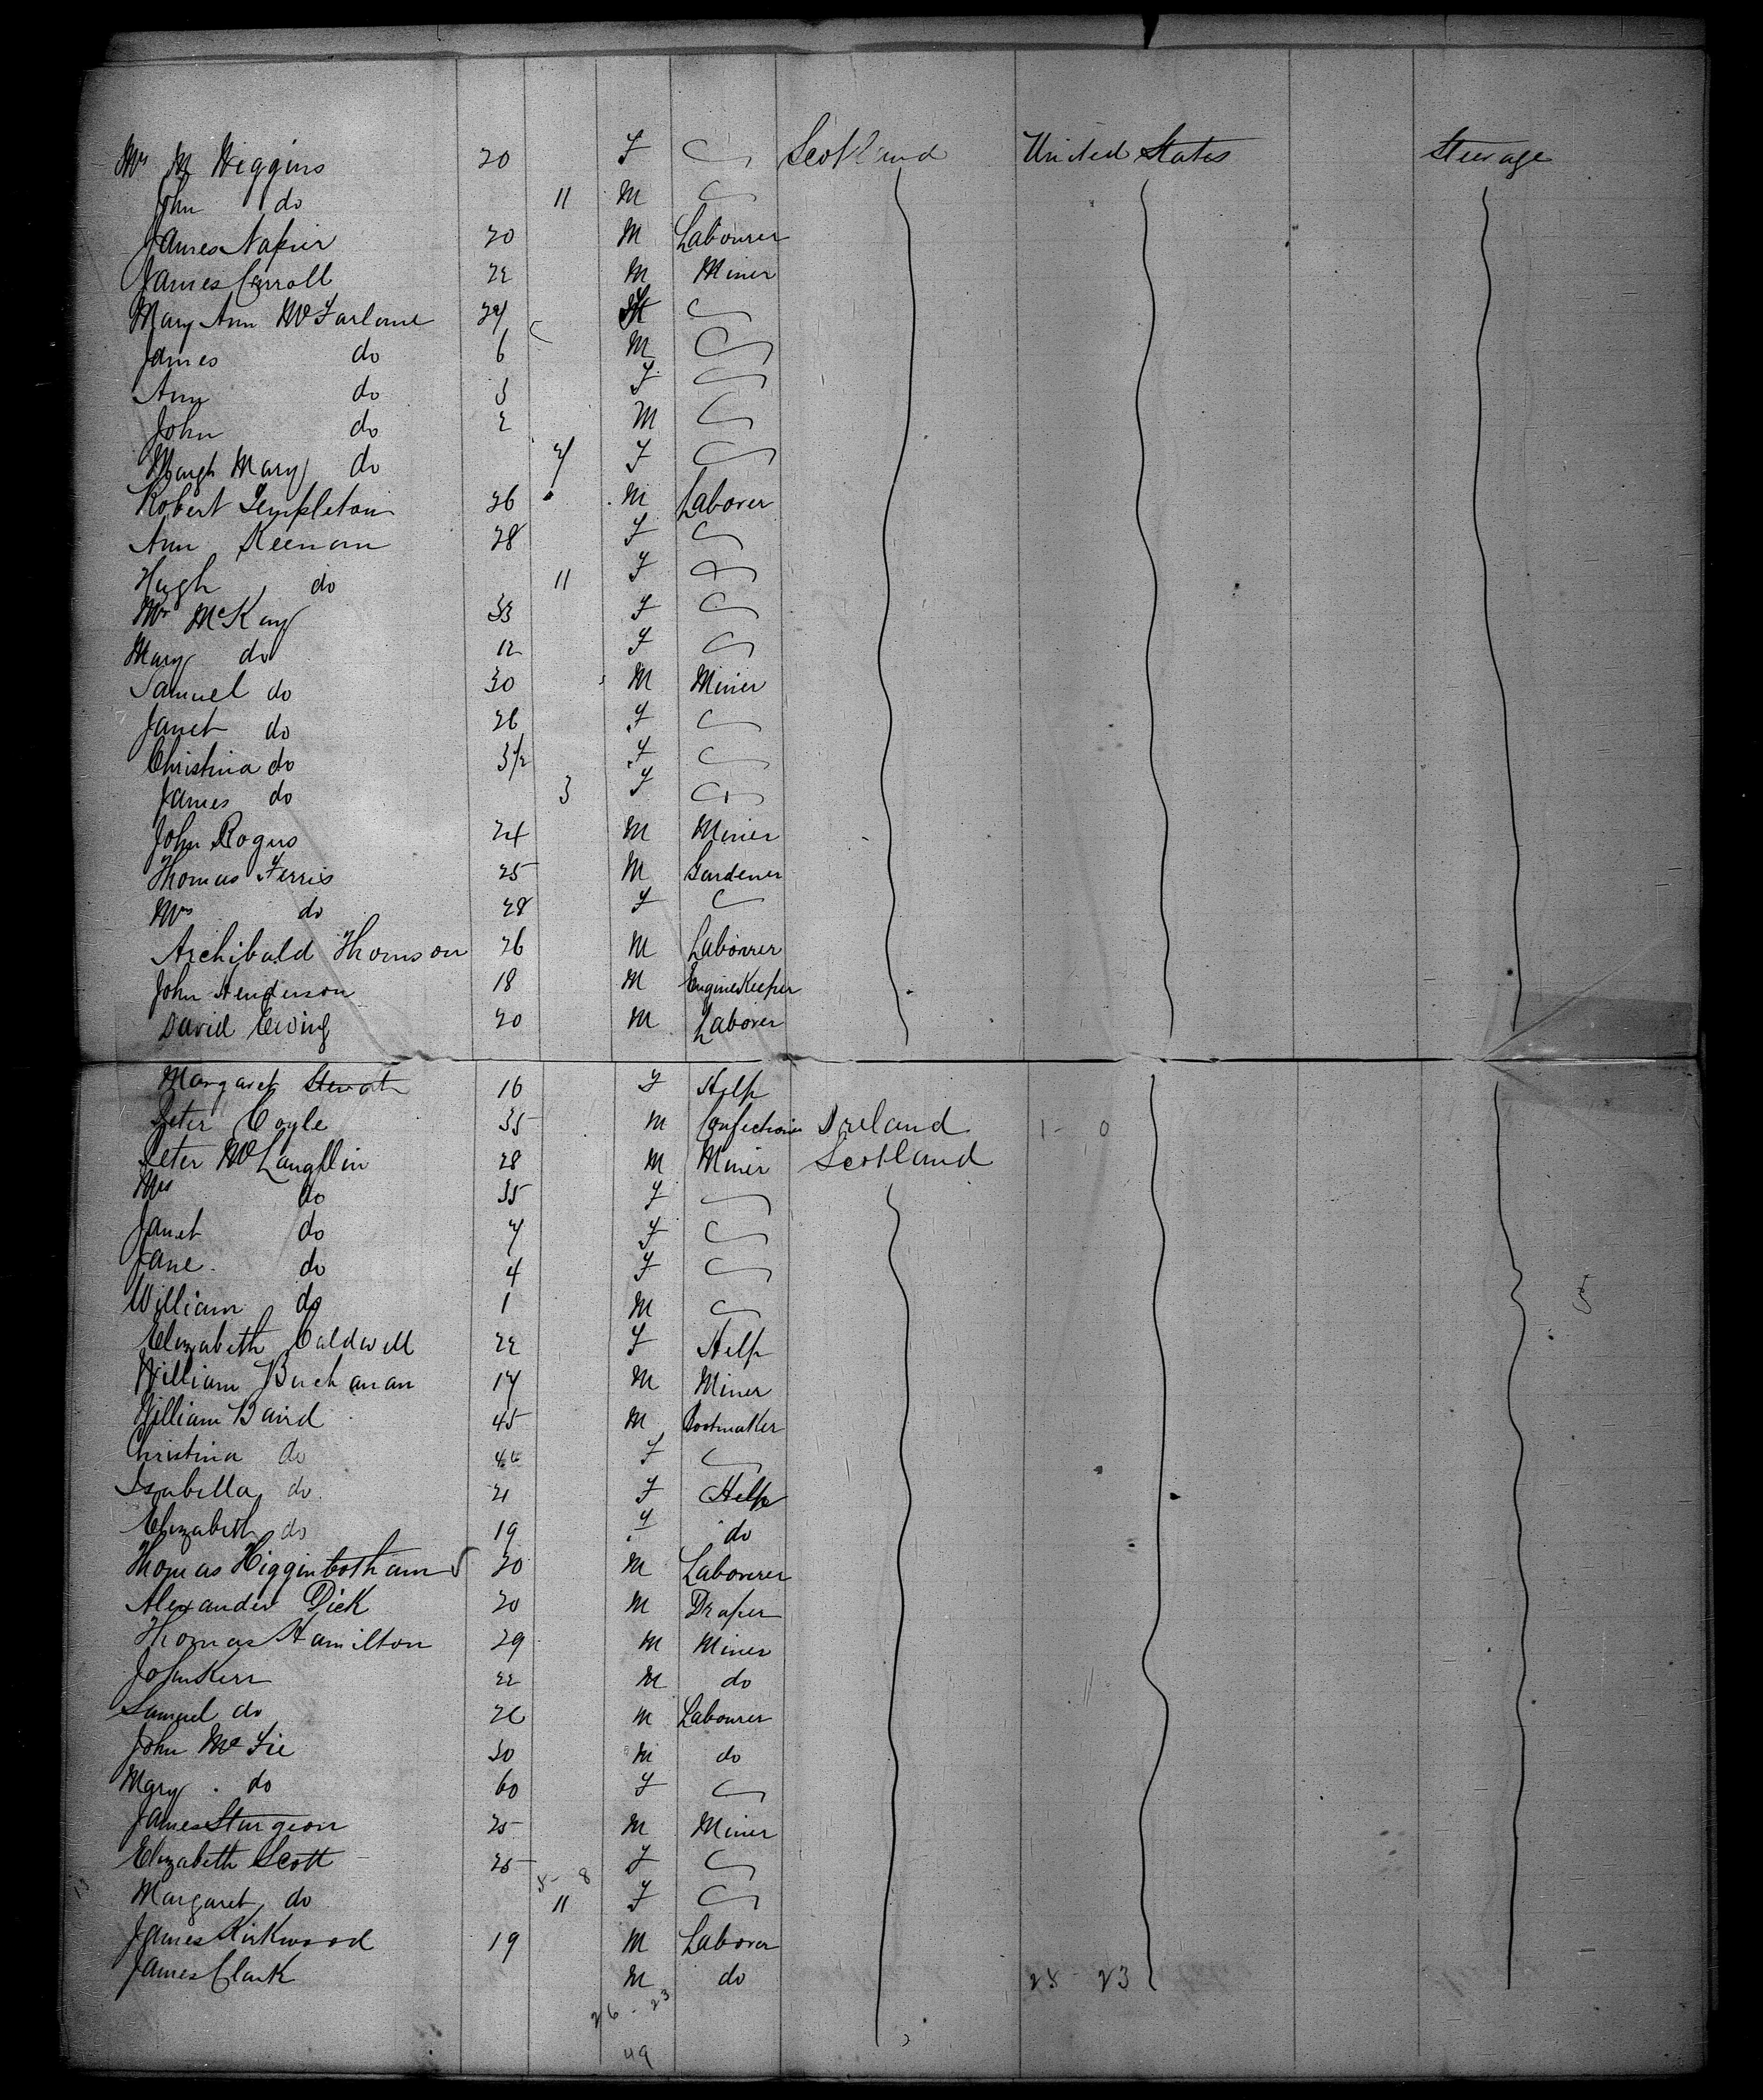 Mrs M Higgins 20 F Scotland United States Steerage
John do 11 M
James Napier 20 M Labourer
James Carroll 22 M Miner
Mary Ann McFarlane 27 F
James do 6 M
Ann do 3 F
John do 2 M
Mary do 7 F
Robert Templeton 26 M Laborer
Ann Keenan 28 F
Hugh do 11 F
Mrs McKay 33 F
Mary do 12 F
Samuel do 30 M Miner
Janet do 26 F
Christina do 3 1/2 F
James do 3 F
John Rogers 24 M Miner
Thomas Ferris 25 M Gardener
Mrs do 28 F
Archibald Thomson 26 M Labourer
John Henderson 18 M Engine Keeper
David Ewing 20 M Laborer
Margaret Stewart 16 F Help
Peter Coyle 35 M Confectioner Ireland 1 - 0
Peter McLaughlin 28 M Miner Scotland
Mrs do 35 F
Janet do 7 F
Jane do 4 F
William do 1 M
Elizabeth Caldwell 22 F Help
William Buchanan 17 M Miner
William Baird 45 M Bootmaker
Christina do F
Isabella do 21 F Help
Elizabeth do 19 F do
Thomas Higginbotham 20 M Labourer
Alexander Dick 20 M Draper
Thomas Hamilton 29 M Miner
John Kerr 22 M do
Samuel do 26 M Labourer
John McFie 30 M do
Mary do 60 F
James Sturgeon 25 M Miner
Elizabeth Scott 25 F
5 - 8
Margaret do 11 F
James Kirkwood 19 M Laborer
James Clark M do 25 - 23
26 - 23
49